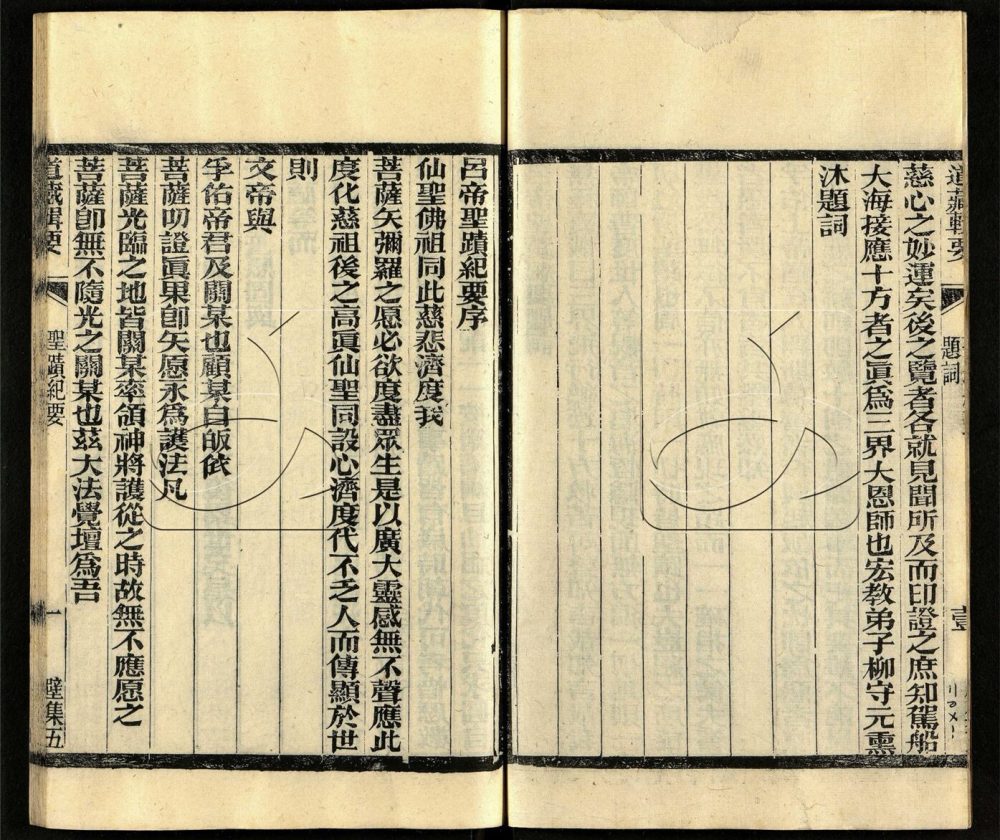 道藏輯要
題詞
慈心之妙運矣後之覽者各就見聞所及而印證之庶知駕船
大海接應十方者之眞爲三界大恩師也宏教弟子柳守元熏
沐題詞
呂帝聖蹟紀要序
仙聖佛祖同此慈悲濟度我
菩薩矢彌羅之愿必欲度盡眾生是以廣大靈感無不聲應此
度化慈祖後之高眞仙聖同設心濟度代不乏人而傳顯於世
則
文帝與
孚佑帝君及關某也顧某自皈依
菩薩叨證眞果卽矢愿永爲護法凡
菩薩光臨之地皆關某率領神將護從之時故無不應愿之
菩薩卽無不隨光之關某也茲大法覺壇爲吾
道藏輯要
聖蹟紀要
一
壁集五